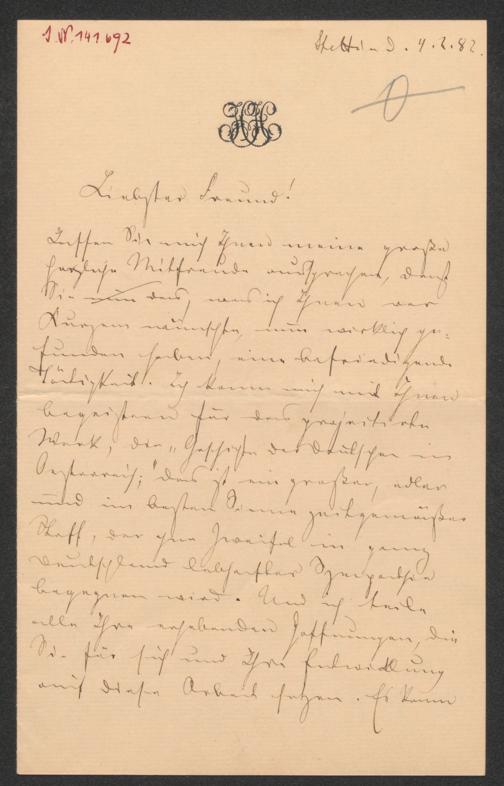 I.N. 141692
Stettin d. 4.2.82.
Liebster Freund!
Lassen Sie mich Ihnen meine große
herzliche Mitfreude aussprechen, daß
Sie nun das, was ich Ihnen vor
Kurzem wünschte, nun wirklich ge-
funden haben, eine befriedigende
Tätigkeit. Ich kann mich mit Ihnen
begeistern für das projectirte
Werk, die „Geschichte der Deutschen in
Oesterreich;" das ist ein großer, edler
und im besten Sinne zeitgemäßer
Stoff, der ohne Zweifel in ganz
Deutschland lebhafter Sympathie
begegnen wird. Und ich teile
alle Ihre erhebenden Hoffnungen, die
Sie für sich und Ihre Entwicklung
auf diese Arbeit setzen. Es kann